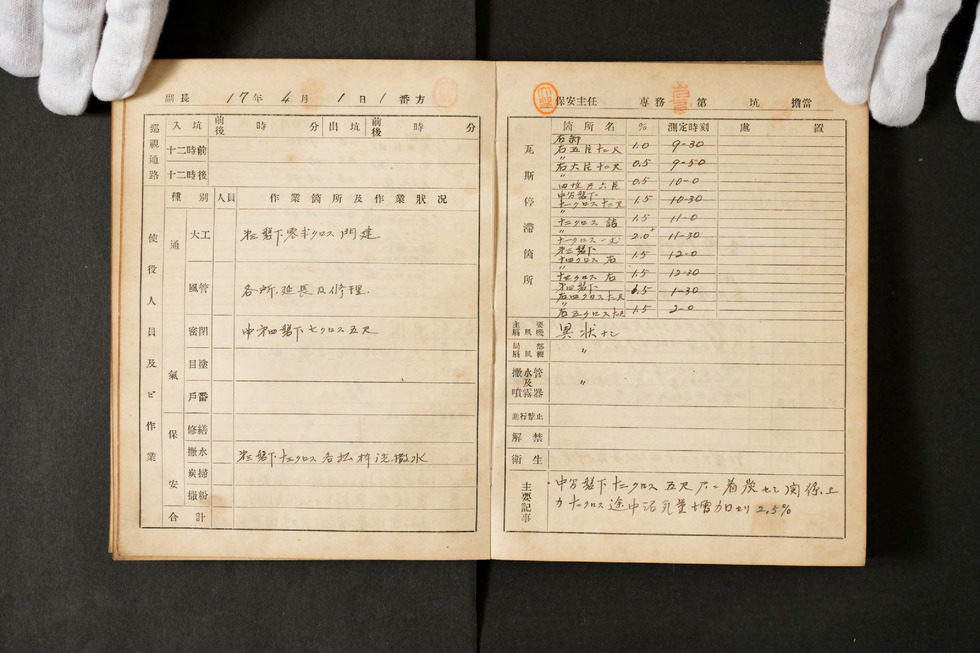 副長 17年4月1日1番方
巡視通路
入坑 前後 時 分 出坑 前後 時 分
十二時前
十二時後
使役人員及ビ作業
種別 人員 作業箇所及作業狀况
通氣
大工 第三盤下零半クロス門建
風管 各所延長及修理.
密閉 中第四盤下七クロス五尺
目塗
戶番
保安
修繕
撒水 第三盤下十二クロス 撒水
炭掃
撒粉
合計
保安主任 専務 第 坑 擔當
瓦斯停滯箇所
箇所名 % 測定時刻 處置
右卸
右五片十二尺 1.0 9-30
〃
右六片十二尺 0.5 9-50
〃
六片 0.5 10-0
中第三盤下
十二尺 1.5 10-30
〃
十二クロス 詰 1.5 11-0
〃
2.0+ 11-30
第三盤下
十四クロス 右 1.5 12-0
〃
クロス 右 1.5 12-30
第四盤下
右四クロス 1.5 1-30
〃
右五クロス 1.5 2-0
主要扇風機 異狀ナシ
局部扇風機 〃
撒水管及噴霧器 〃
進行禁止
解禁
衛生
主要記事
盤下十二クロス五尺 着炭セシ関係上
クロス途中瓦斯量増加セリ 2.5%